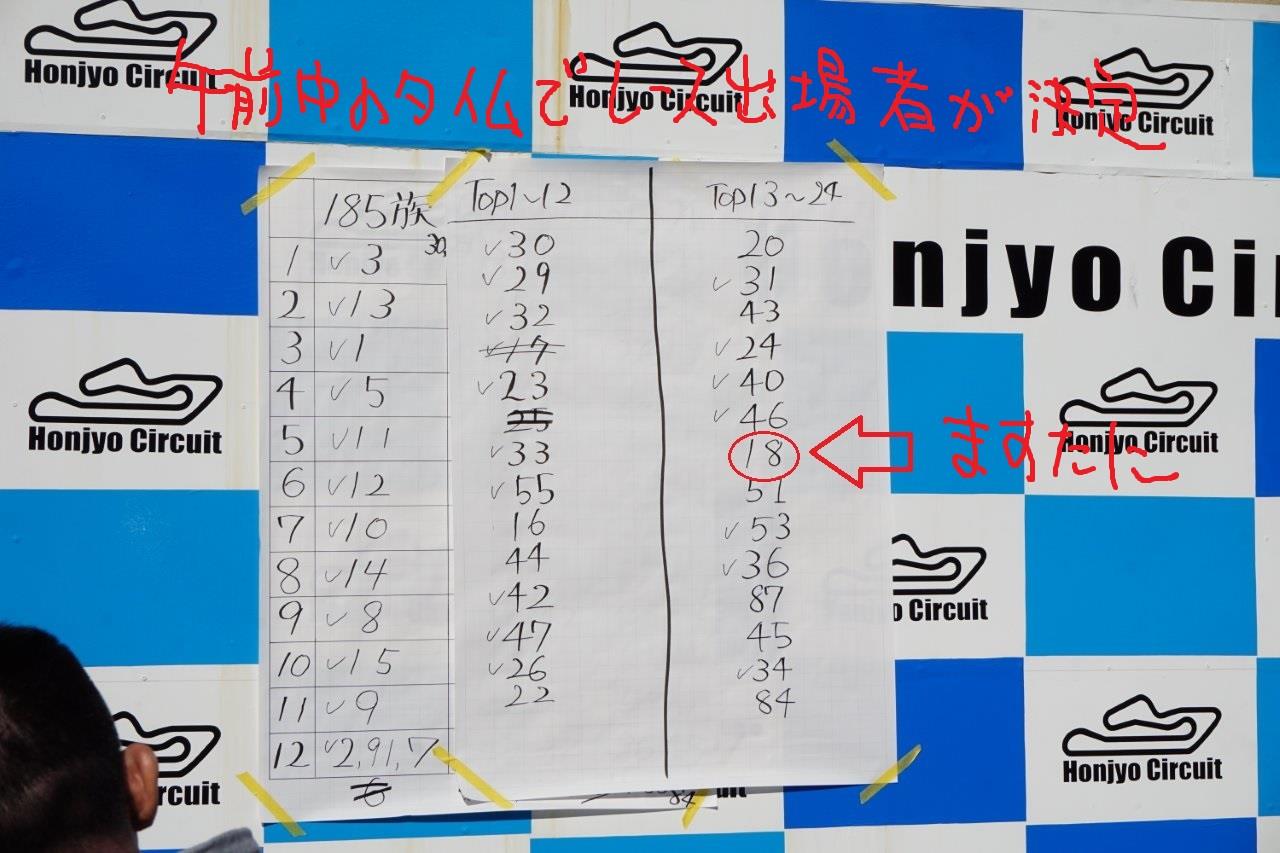 Honjyo Circuit
Honjyo Circuit
午前中のタイムでレース出場者が決定
Honjyo Circuit
185族
30,
1 ✓3
2 ✓13
3 ✓1
4 ✓5
5 ✓11
6 ✓12
7 ✓10
8 ✓14
9 ✓8
10 ✓15
11 ✓9
12 ✓2,91,7
6
Top1~12
✓30
✓29
✓32
✓17
✓23
25
✓33
✓55
16
44
✓42
✓47
✓26
22
Top13~24
20
✓31
43
✓24
✓40
✓46
18
51
✓53
✓36
87
45
✓34
84
ますたに
84
onjyo Cir
Honjyo Circuit
Honjyo Circuit
o Circuit
rcuit
uit
Honjyo Circuit